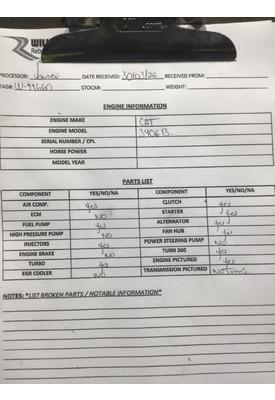 PROCESSOR: DATE RECEIVED: 30/03/26 RECEIVED FROM:
TAG#: W-99660 STOCK#: WEIGHT:
ENGINE INFORMATION
ENGINE MAKE CAT
ENGINE MODEL 3406B
SERIAL NUMBER / CPL
HORSE POWER
MODEL YEAR
PARTS LIST
COMPONENT YES/NO/NA COMPONENT YES/NO/NA
AIR COMP. yes CLUTCH yes
ECM NO STARTER yes
FUEL PUMP yes ALTERNATOR yes
HIGH PRESSURE PUMP NO FAN HUB yes
INJECTORS yes POWER STEERING PUMP NO
ENGINE BRAKE NO TURN 360
TURBO yes ENGINE PICTURED yes
EGR COOLER NO TRANSMISSION PICTURED
NOTES: *LIST BROKEN PARTS / NOTABLE INFORMATION*